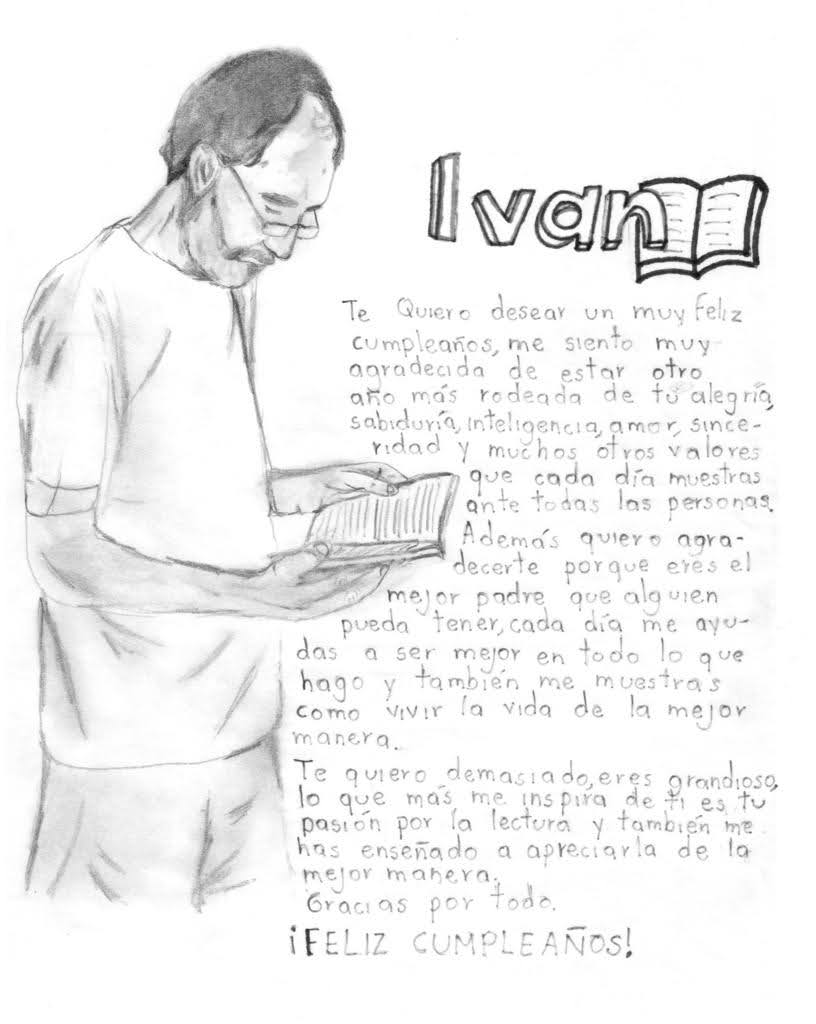 Ivan
Te Quiero desear un muy feliz
cumpleaños, me siento muy
agradecida de estar otro
año más rodeada de tu alegría,
sabiduría, inteligencia, amor, since-
ridad y muchos otros valores
que cada día muestras
ante todas las personas.
Además quiero agra-
decerte porque eres el
mejor padre que alguien
pueda tener, cada día me ayu-
das a ser mejor en todo lo que
hago y también me muestras
como vivir la vida de la mejor
manera.
Te quiero demasiado, eres grandioso,
lo que más me inspira de ti es tu
pasión por la lectura y también me
has enseñado a apreciarla de la
mejor manera.
Gracias por todo.
¡FELIZ CUMPLEAÑOS!